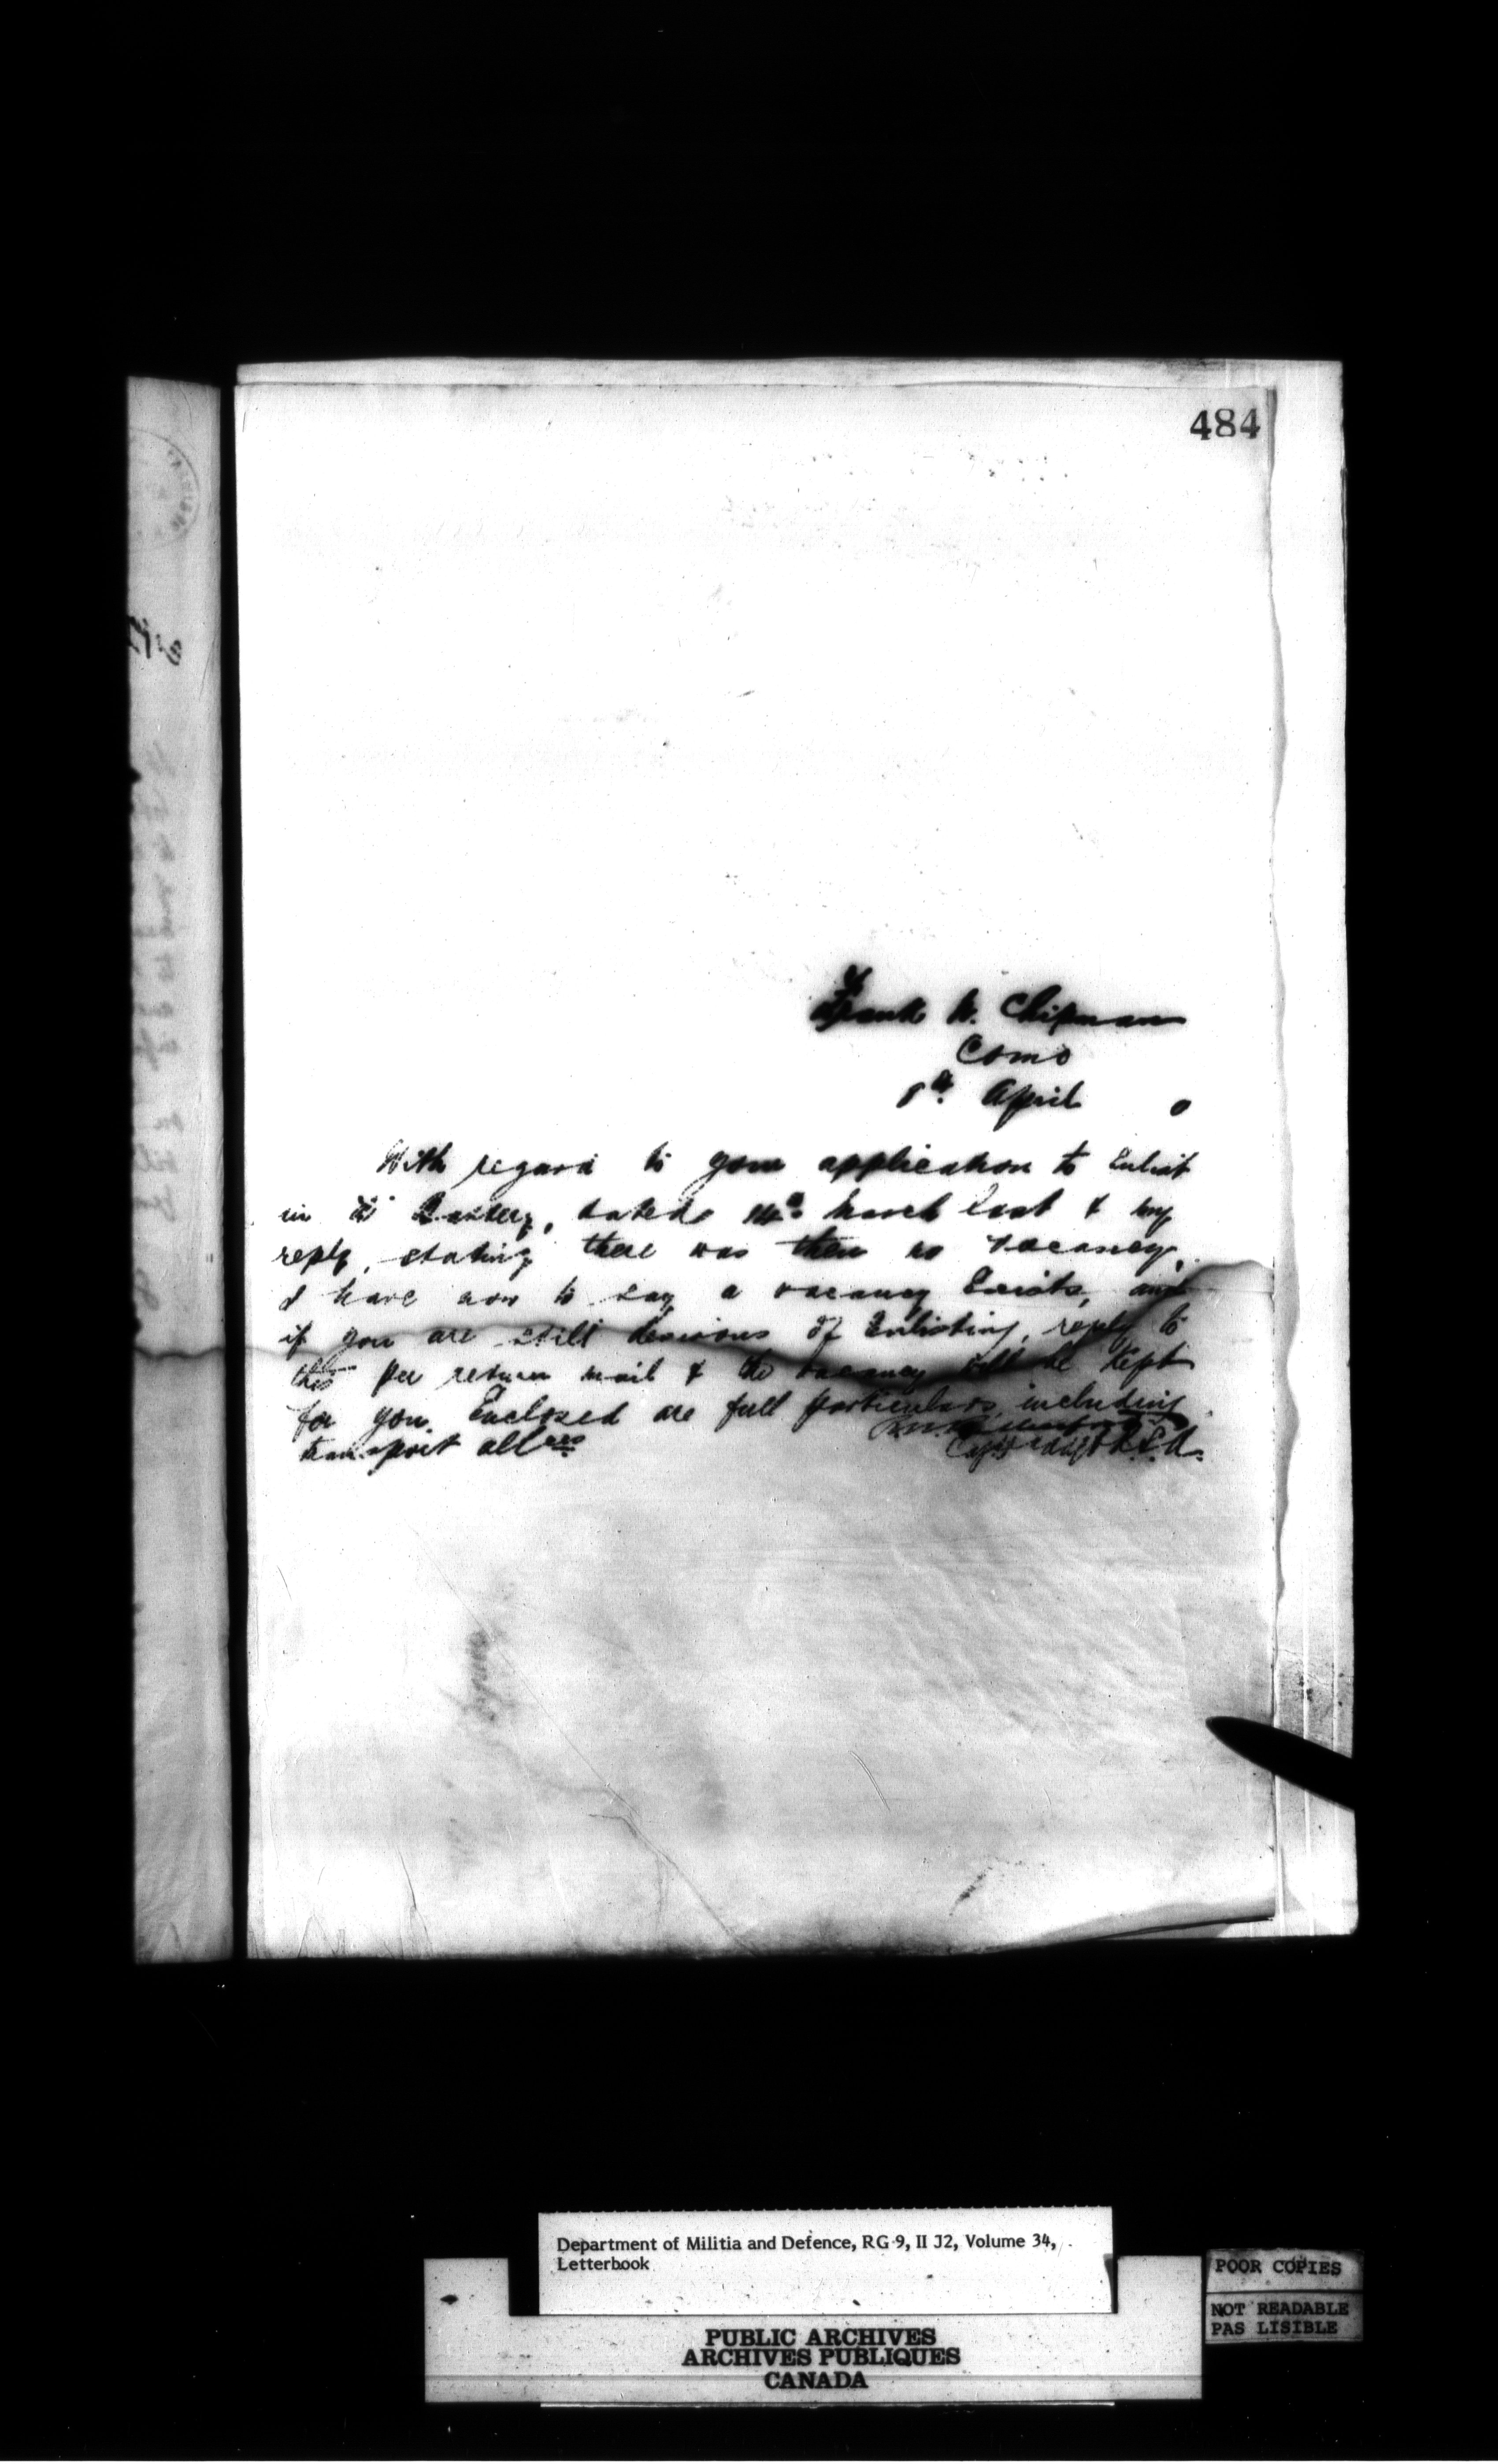 484
Frank W. Chipman
Como
8th April
With regard to your application to Enlist
in Battery, dated 14th March last & my
reply, stating there was then no vacancy,
I have now to say a vacancy Exists, and
if you are still desirous of Enlisting, reply to
this per return mail & the vacancy will be Kept
for you. Enclosed are full particulars, including
transport allces
Capt
Department of Militia and Defence, RG 9, II J2, Volume 34,
Letterbook
POOR COPIES
NOT READABLE
PAS LISIBLE
PUBLIC ARCHIVES
ARCHIVES PUBLIQUES
CANADA